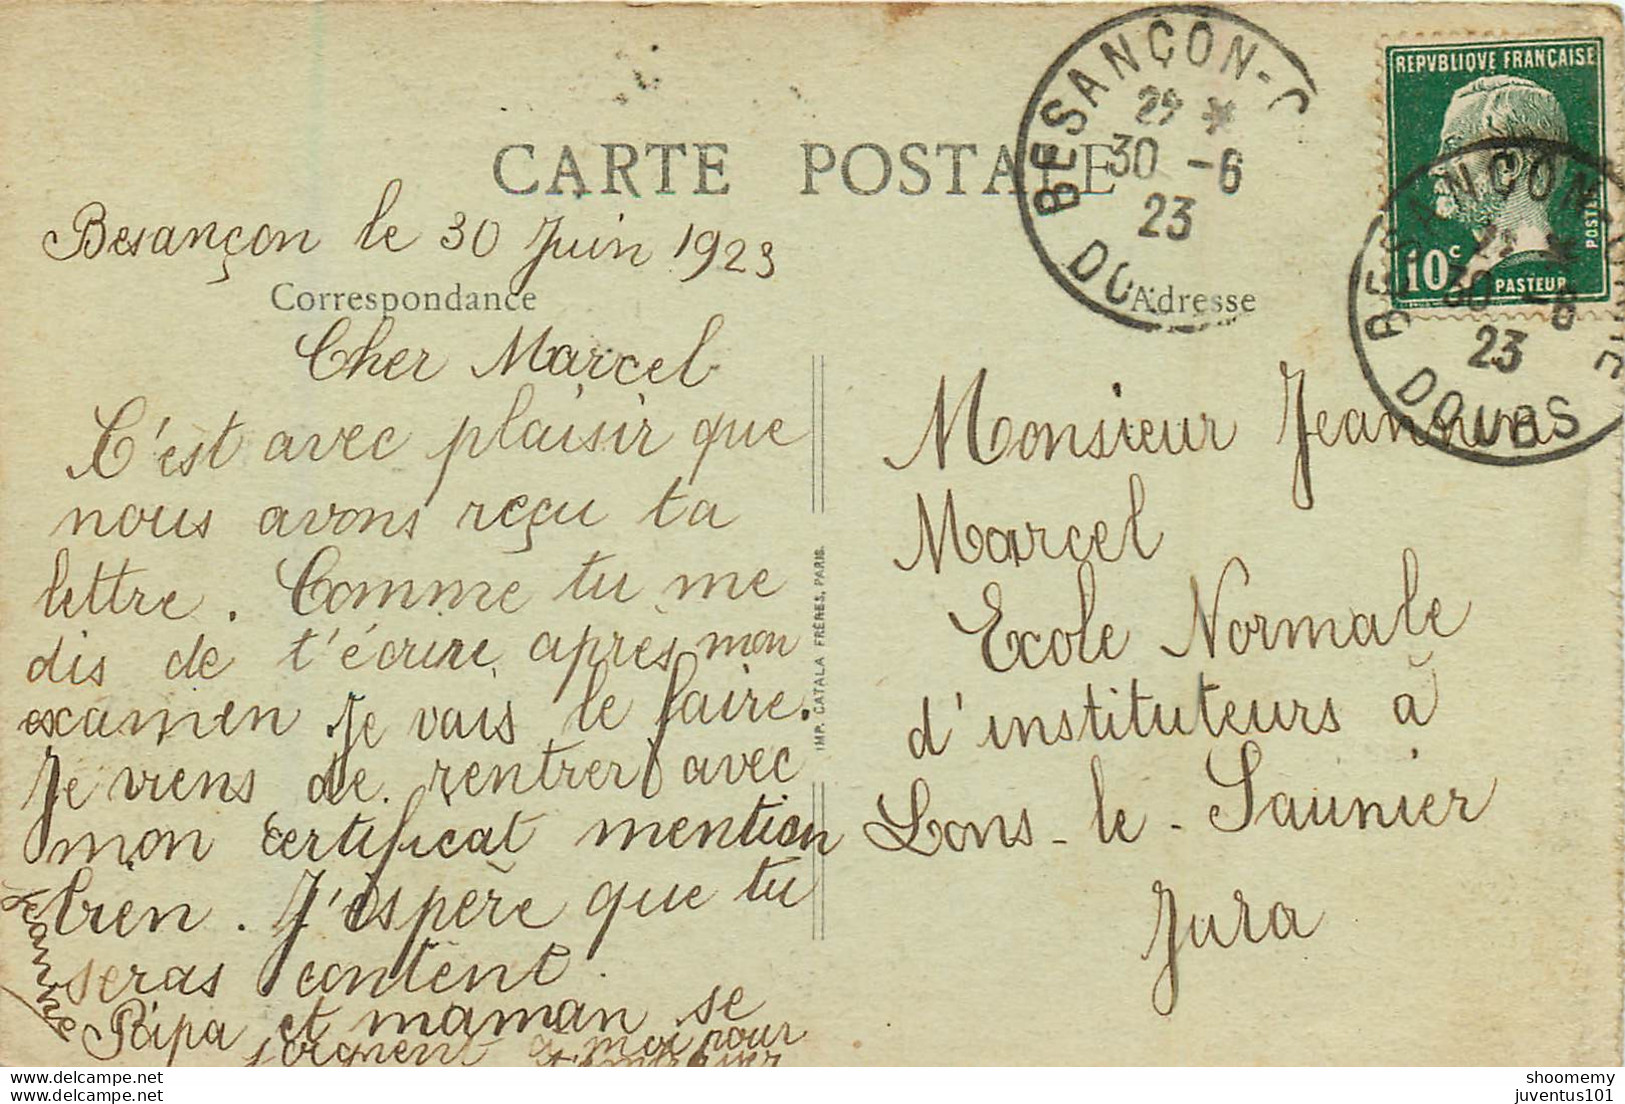 CARTE POSTALE
BESANÇON-
22 *
30 -6
23
DO
REPVBLIQVE FRANÇAISE
10c
POSTES
PASTEUR
BESANÇON
22 *
30 -6
23
DOUBS
Besançon le 30 Juin 1923
Correspondance
Cher Marcel
C'est avec plaisir que
nous avons reçu ta
lettre. Comme tu me
dis de t'écrire apres mon
examen Je vais le faire.
Je viens de rentrer avec
mon certificat mention
bien. J'éspère que tu
seras content.
Papa et maman se
joignent a moi pour
Jeanne
IMP. CATALA FRÈRES, PARIS.
Adresse
Monsieur Jeannin
Marcel
Ecole Normale
d'instituteurs à
Lons-le-Saunier
Jura
www.delcampe.net
www.delcampe.net
shoomemy
juventus101